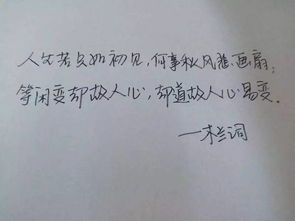 人生若只如初见,何事秋风悲画扇,
等闲变却故人心,却道故人心易变.
一木兰词